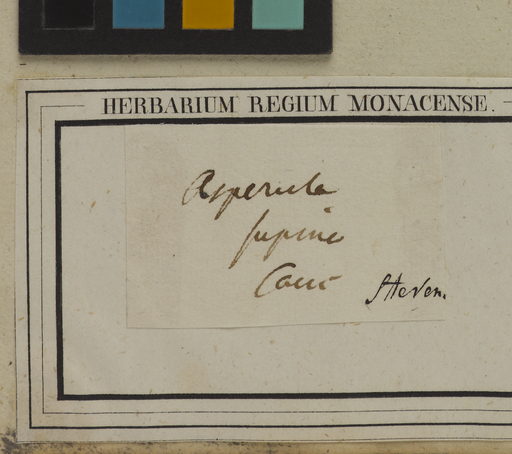 HERBARIUM REGIUM MONACENSE.
Asperula
supina
Cauc
Steven.